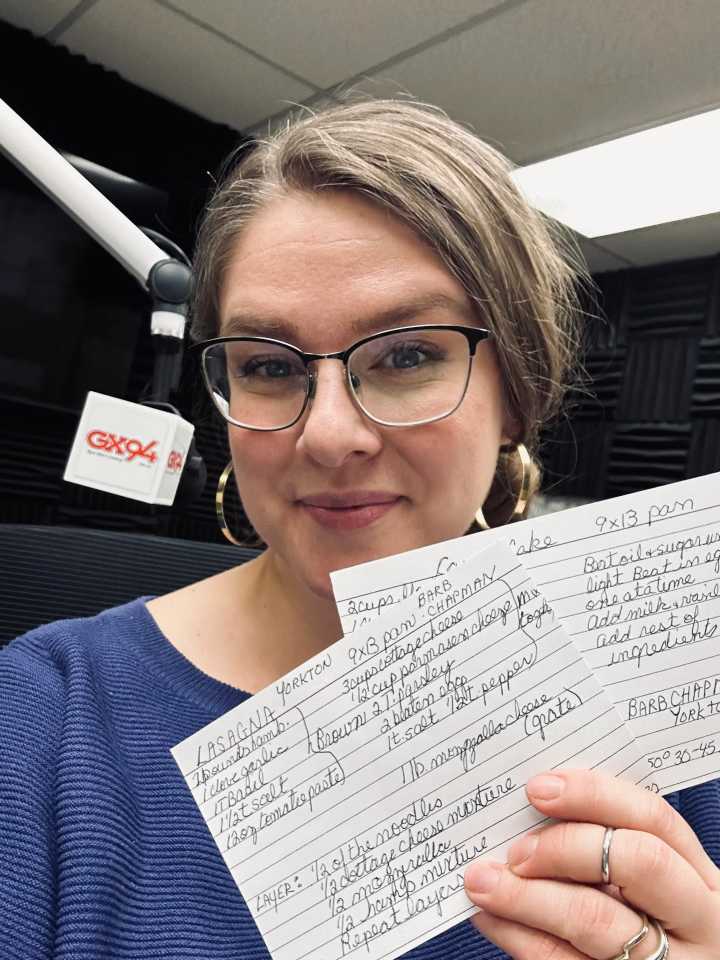 GX94
GX94
2 cups
ake 9x13 pan
Beat oil & sugar un
light Beat in eg
one at a time
add milk & vanil
add rest of
ingredients
BARB CHAPM
YORKTO
50° 30-45
LASAGNA YORKTON 9x13 pan BARB CHAPMAN
2 pounds hamb.
1 clove garlic
1 T Basil
1 1/2 t salt
12 oz tomatoe paste
Brown
3 cups cottage cheese
1/2 cup parmesan cheese
2 T. parsley
2 beaten egg
1 t. salt 1/2 t pepper
1 lb. mozzalla cheese
(grate)
LAYER: 1/2 of the noodles
1/2 cottage cheese mixture
1/2 mozzralla
1/2 hamb mixture
Repeat layers